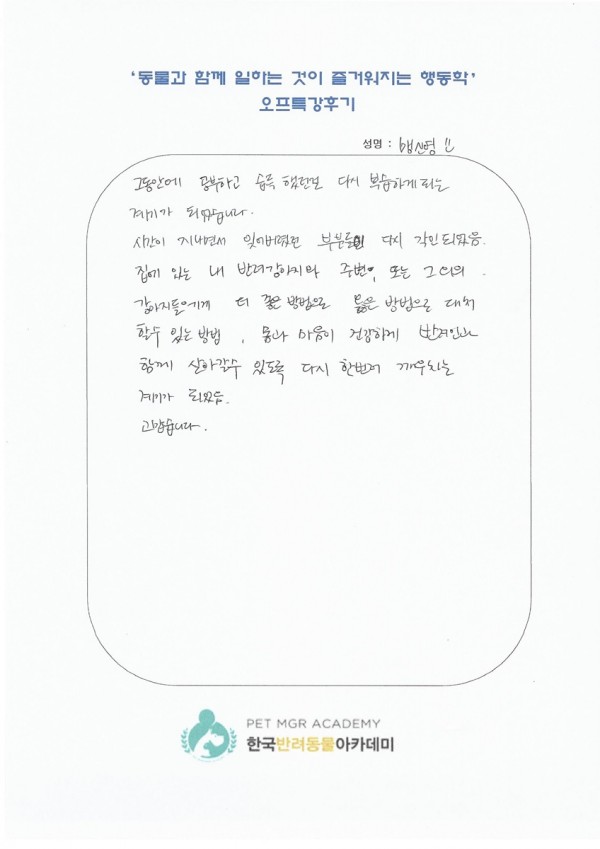 ‘동물과 함께 일하는 것이 즐거워지는 행동학’
오프특강후기
성명 :
그동안에 공부하고 습득 했던걸 다시 복습하게되는
계기가 되었습니다.
시간이 지나면서 잊어버렸던 부분들이 다시 각인되었음.
집에 있는 내 반려강아지와 주변, 또는 그 외의
강아지들에게 더 좋은 방법으로 옳은 방법으로 대처
할수 있는 방법, 몸과 마음이 건강하게 반려인과
함께 살아갈수 있도록 다시 한번더 깨우치는
계기가 되었음.
고맙습니다.
PET MGR ACADEMY
한국반려동물아카데미